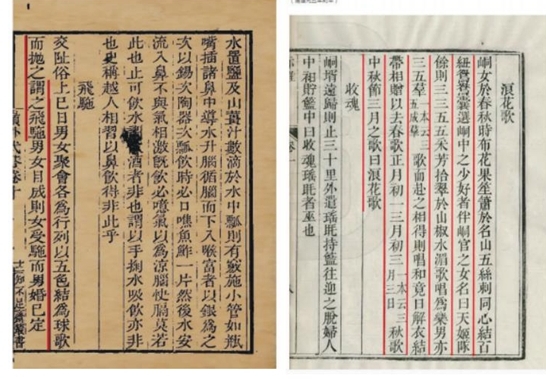 水置鹽及山薑汁數滴於水中瓢則有竅施小管如瓶
嘴插諸鼻中導水升腦循腦而下入喉富者以銀為之
次以錫次陶器次瓢飲時必口噍魚鮓一片然後水安
流入鼻不與氣相激既飲必噫氣以為涼腦快膈莫若
此也止可飲水謂飲酒者非也謂以手掬水吸飲亦非
也史稱越人相習以鼻飲得非此乎
飛駞
交趾俗上巳日男女聚會各為行列以五色結為球歌
而抛之謂之飛駞男女目成則女受駞而男婚已定
浪花歌
峒女於春秋時布花果笙簫於名山五絲刺同心結百
紐鴛鴦囊選峒中之少好者伴峒官之女名曰天姬隊
餘則三三五五采芳拾翠於山椒水湄歌唱為樂男亦
三五羣一本云三五成羣歌而赴之相得則唱和竟日解衣結
帶相贈以去春歌正月初一三月初三一本云三月三日秋歌
中秋節三月之歌曰浪花歌
收魂
峒壻遠歸則止三十里外遣瑤毦持籃往迎之脫婦人
中裙貯籃中曰收魂瑤毦者巫也